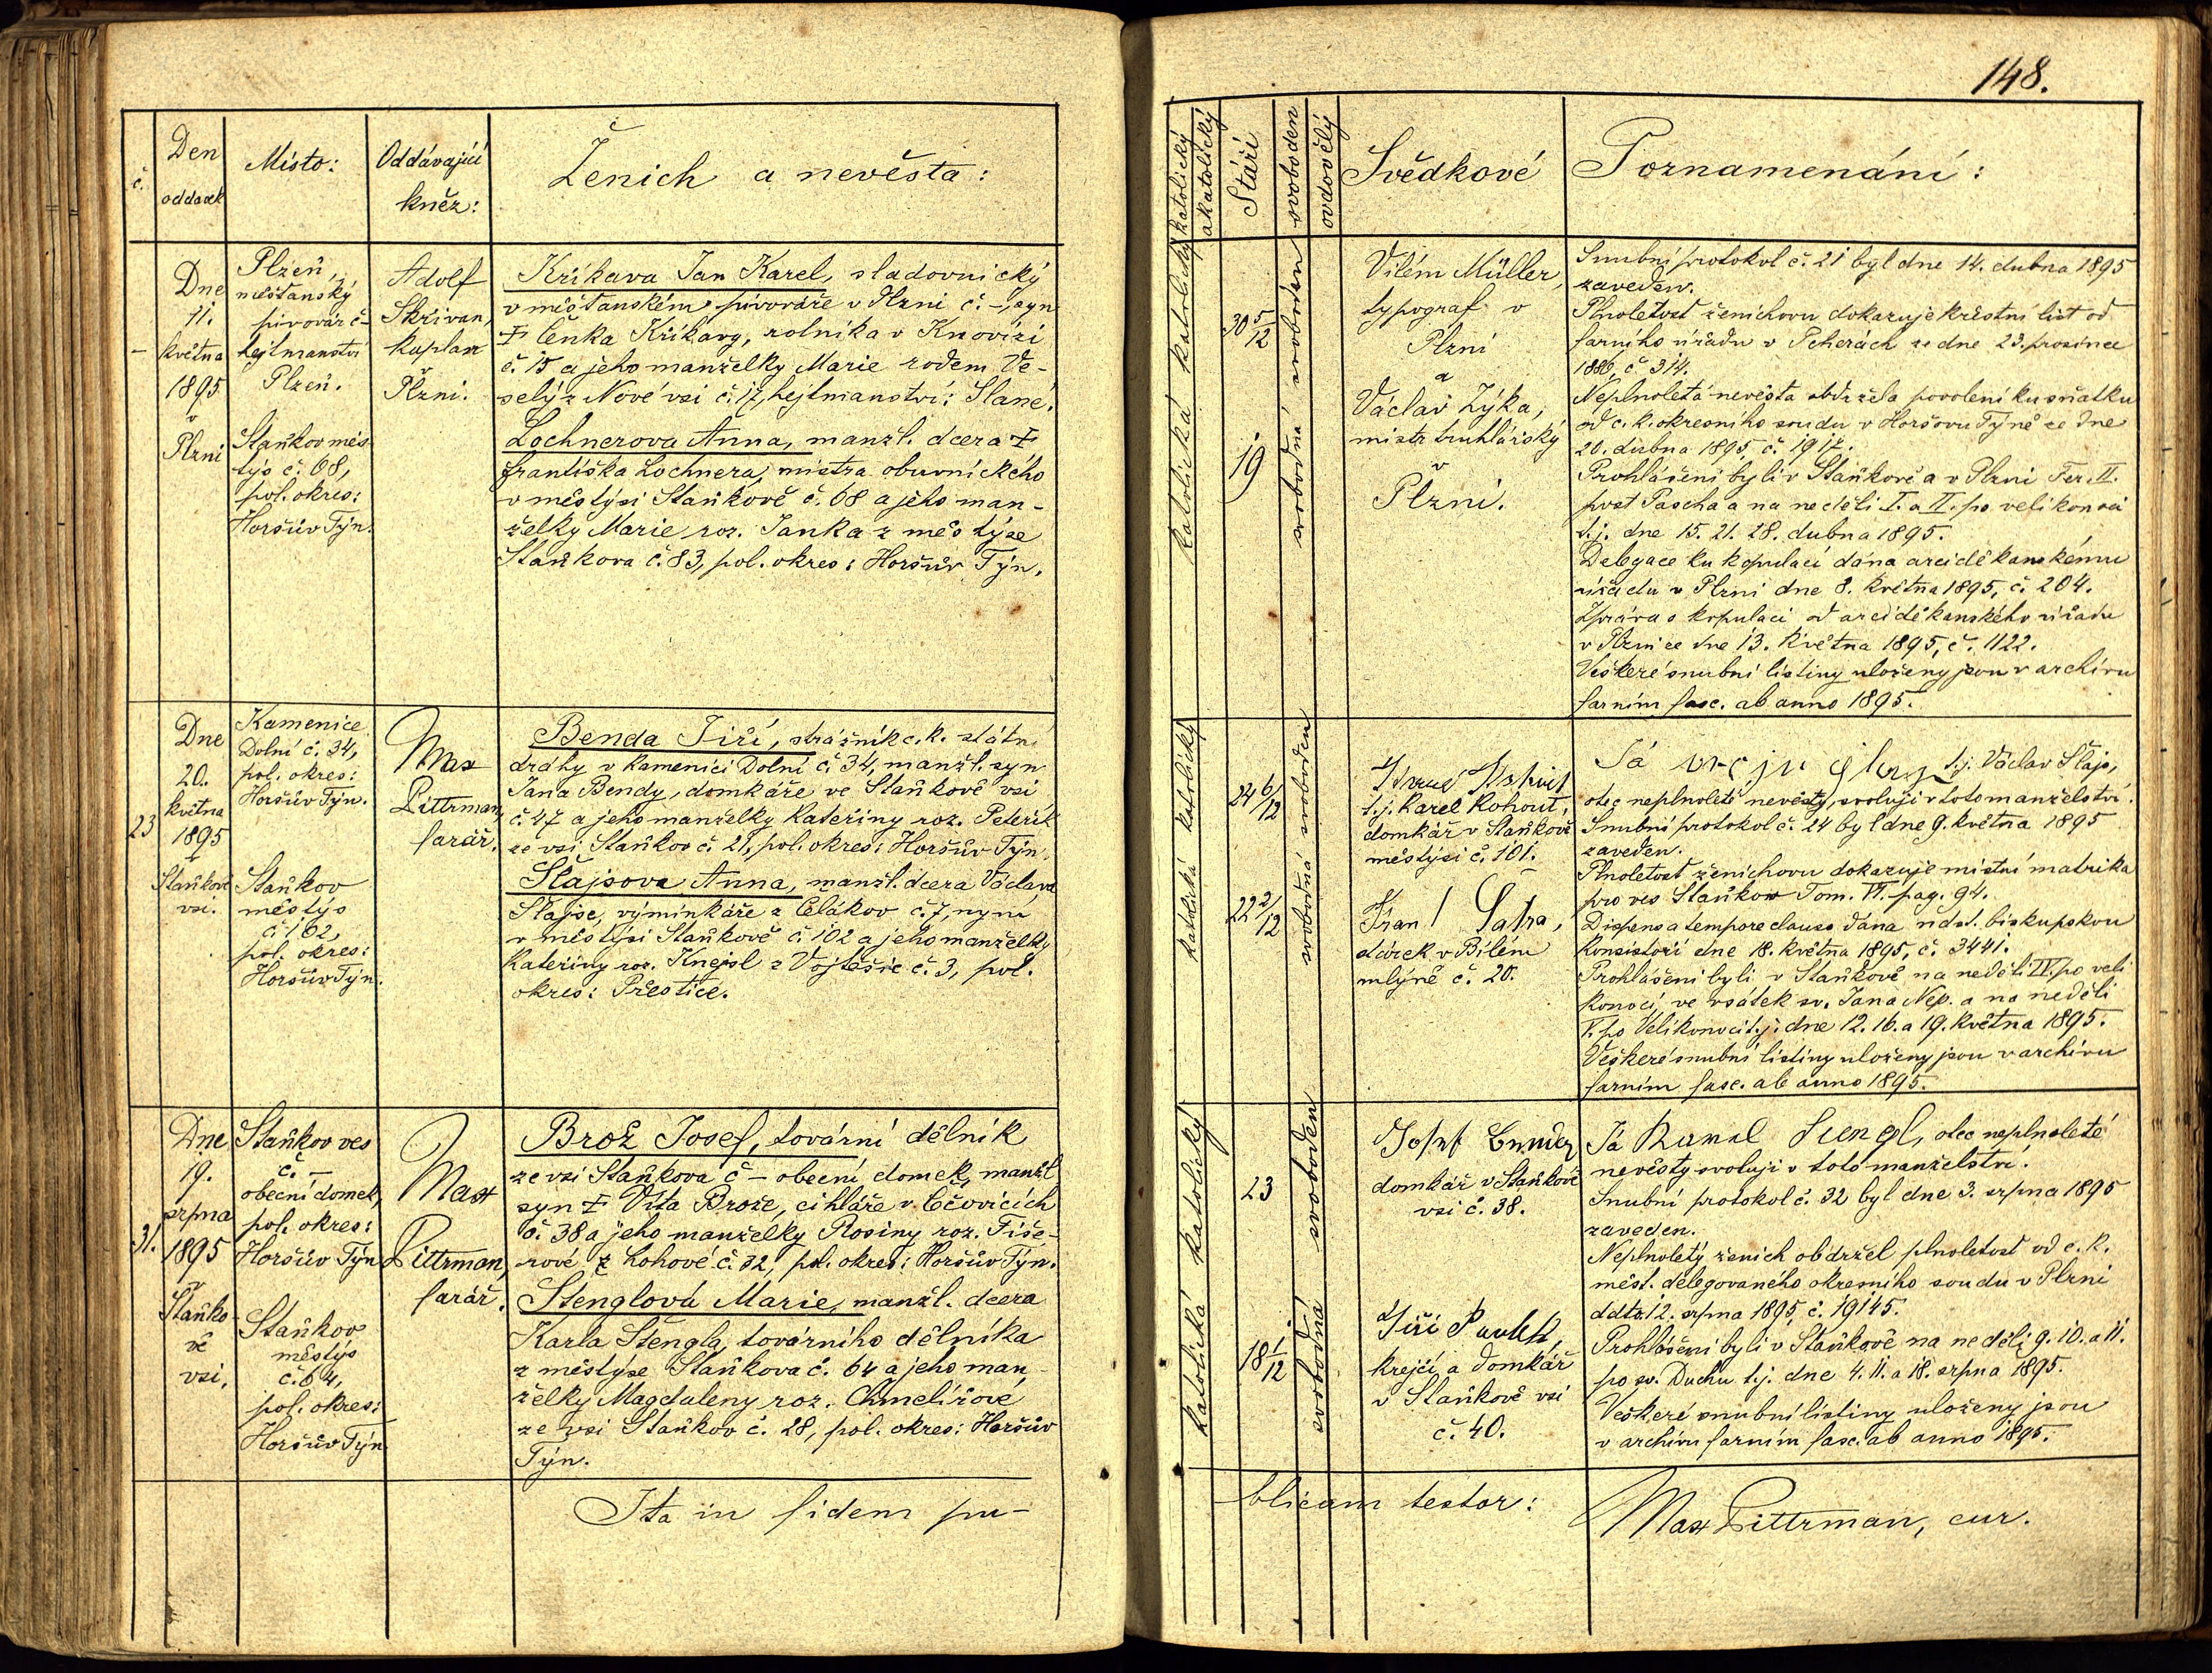 148.
č.
Den
oddavek
Místo:
Oddávající
kněz:
Ženich a nevěsta:
Dne
11.
května
1895
v
Plzni
Plzeň,
měšťanský
pivovár č –
hejtmanství
Plzeň.
Staňkov měs
tys č. 68,
pol. okres:
Horšův Týn.
Adolf
Skřivan,
kaplan
Plzni.
Kříkava Jan Karel, sladovnický
v měšťanském pivováře v Plzni č. –, syn
† Čeňka Kříkavy, rolníka v Knovízi
č. 15 a jeho manželky Marie rodem Ve-
selý z Nové vsi č. 17, hejtmanství: Slané.
Lochnerova Anna, manžl. dcera †
Františka Lochnera, mistra obuvnického
v městysi Staňkově č. 68 a jeho man-
želky Marie roz. Janka z městýse
Staňkova č. 83, pol. okres: Horšův Týn.
23
Dne
20.
května
1895
v
Staňkově
vsi.
Kamenice
Dolní č. 34,
pol. okres:
Horšův Týn.
Staňkov
městýs
č. 102,
pol. okres:
Horšův Týn.
Max
Pittrman,
farář.
Benda Jiří, strážník c. k. státní
dráhy v Kamenici Dolní č. 34, manžl. syn
Jana Bendy, domkáře ve Staňkově vsi
č. 47 a jeho manželky Kateřiny roz. Peteřík
ze vsi Staňkov č. 21, pol. okres: Horšův Týn.
Šlajsova Anna, manžl. dcera Václava
Šlajse, výminkáře z Čelákov č. 7, nyní
v městýsi Staňkově č. 102 a jeho manželky
Kateřiny roz. Knejsl z Vojtěšic č. 3, pol.
okres: Přeštice.
31.
Dne
19.
srpna
1895
v
Staňko-
vě
vsi.
Staňkov ves
č. –
obecní domek,
pol. okres:
Horšův Týn
Staňkov
městýs
č. 64,
pol. okres:
Horšův Týn
Max
Pittrman,
farář.
Brož Josef, tovární dělník
ze vsi Staňkova č – obecní domek, manžl.
syn † Víta Brože, cihláře v Čečovicích
č. 38 a jeho manželky Rosiny roz. Fiše-
rové z Lohové č. 32, pol. okres: Horšův Týn.
Stenglová Marie, manžl. dcera
Karla Stengla, továrního dělníka
z městýse Staňkova č. 64 a jeho man-
želky Magdaleny roz. Chmelířové
ze vsi Staňkov č. 28, pol. okres: Horšův
Týn.
Ita in fidem pu-
katolický
akatolický
Stáří
svoboden
ovdovělý
Svědkové
Poznamenání:
katolická katolický
30 5/12
19
svobodná svoboden
Vilém Müller,
typograf v
Plzni
a
Václav Zýka,
mistr truhlářský
v
Plzni.
Snubní protokol č. 21 byl dne 14. dubna 1895
zaveden.
Plnoletost ženichovu dokazuje křestní list od
farního úřadu v Peherách ze dne 23. prosince
1886, č 314.
Neplnoletá nevěsta obdržela povolení ku sňatku
od c. k. okresního soudu v Horšovu Týně ze dne
20. dubna 1895, č. 1917.
Prohlášeni byli v Staňkově a v Plzni Fer. II.
post Pascha a na neděli I. a II. po velikonoci
t. j. dne 15. 21. 28. dubna 1895.
Delegace ku kopulaci dána arciděkanskému
úřadu v Plzni dne 8. května 1895, č. 204.
Zpráva o kopulaci od arciděkanského úřadu
v Plzni ze dne 13. května 1895, č. 1122.
Veškeré snubní listiny uloženy jsou v archivu
farním fasc. ab anno 1895.
katolická katolický
24 6/12
22 2/12
svobodná svoboden
t. j. Karel Kohout,
domkář v Staňkově
městýsi č. 101.
Fran Šatra,
dárek v Bílém
mlýně č. 20.
Já t. j. Václav Šlajs,
otec neplnoleté nevěsty, svoluji v toto manželství.
Snubní protokol č. 24 byl dne 9. května 1895
zaveden.
Plnoletost ženichovu dokazuje místní matrika
pro ves Staňkov Tom. VI. pag. 94.
Dispens a tempore clauso dána ndst. biskupskou
konsistoří dne 18. května 1895, č. 3441.
Prohlášeni byli v Staňkově na neděli IV. po veli
konoci, ve svátek sv. Jana Nep. a na neděli
V. po Velikonoci t. j: dne 12. 16. a 19. května 1895.
Veškeré snubní listiny uloženy jsou v archivu
farním fasc. ab anno 1895.
katolická katolický
23
18 1/12
svobodná svoboden
Josef
domkář v Staňkově
vsi č. 38.
Jiří Pavlík,
krejčí a domkář
v Staňkově vsi
č. 40.
Já Karel Stengl, otec neplnoleté
nevěsty svoluji v toto manželství.
Snubní protokol č. 32 byl dne 3. srpna 1895
zaveden.
Neplnoletý ženich obdržel plnoletost od c. k.
měst. delegovaného okresního soudu v Plzni
ddto. 12. srpna 1895, č. 19145.
Prohlášeni byli v Staňkově na neděli 9. 10. a 11.
po sv. Duchu t. j. dne 4. 11. a 18. srpna 1895.
Veškeré snubní listiny uloženy jsou
v archivu farním fasc. ab anno 1895.
blicam testor:
Max Pittrman, cur.